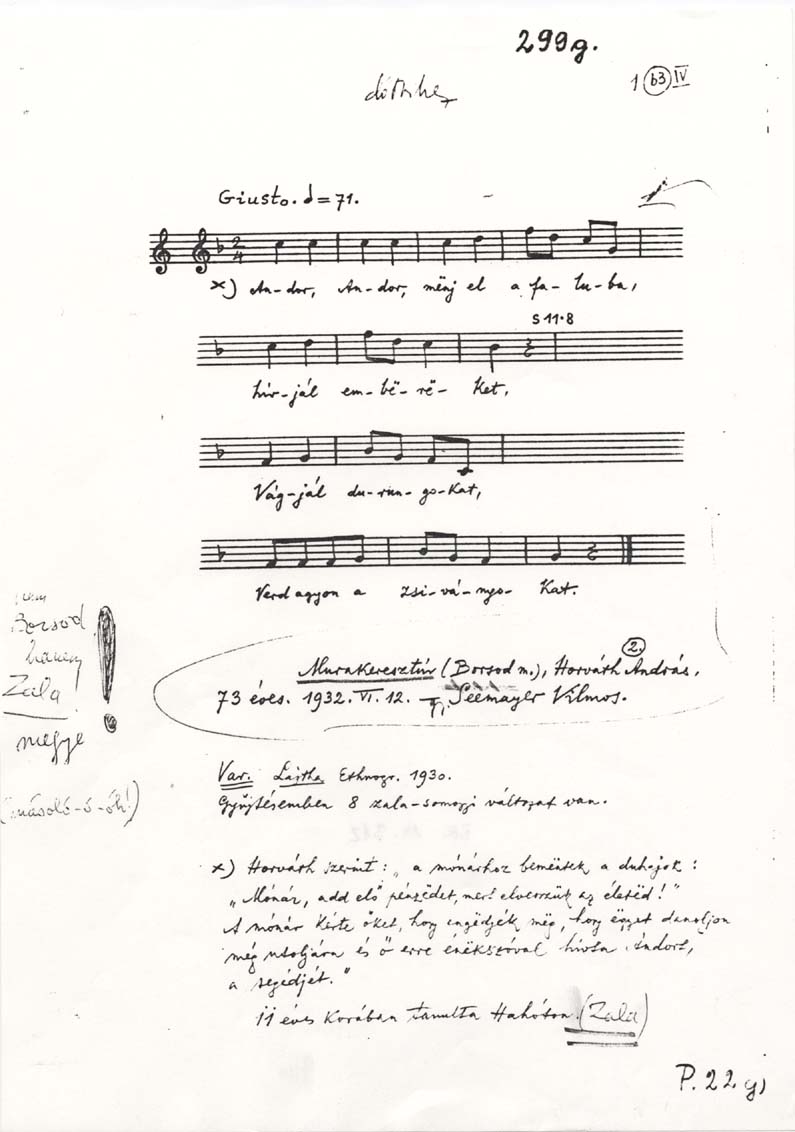 299g.
1 b3 IV
Giusto. = 71.
2
4
x) An-dor, An-dor, mënj el a fa-lu-ba,
S 11·8
hív-jál em-bë-rë-ket,
Vág-jál du-run-go-kat,
Verd agyon a zsi-vá-nyo-kat.
Borsod
hanem
Zala!
megye
(másoló-ó-óh!)
2.
Murakeresztúr (Borsod m.), Horváth András,
73 éves. 1932. VI. 12. Seemayer Vilmos.
Var. Lajtha Ethnogr. 1930.
Gyűjtésemben 8 zala-somogyi változat van.
x) Horváth szerint: „a mónárhoz bemëntek a duhajok:
„Mónár, add elő pénzëdet, mer! elvesszük az életëd!"
A mónár kérte őket, hogy engedjék mëg, hogy ëgyet danoljon
mëg utoljára és ő erre énëkszóval hívta Andort,
a segédjét."
11 éves korában tanulta Hahóton. (Zala)
P. 22 g)